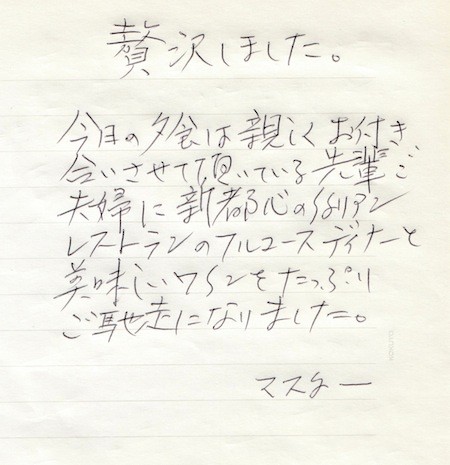 贅沢しました。
今日の夕食は親しくお付き
合いさせて頂いている先輩ご
夫婦に新都心のイタリアン
レストランのフルコースディナーと
美味しいワインをたっぷり
ご馳走になりました。
マスター